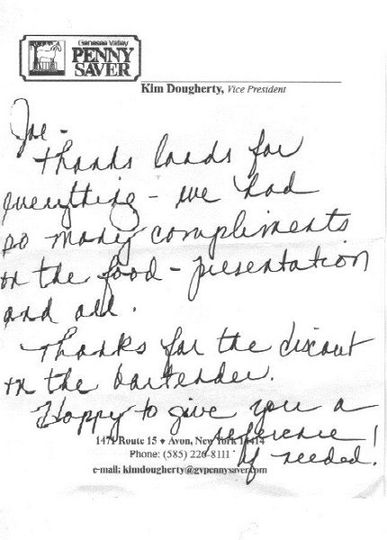 Genesee Valley
PENNY
SAVER
Kim Dougherty, Vice President
Joe -
Thanks loads for
everything - we had
so many compliments
on the food - presentation
and all.
Thanks for the discout
on the bartender.
Happy to give you a
reference!
if needed.
1471 Route 15 ♦ Avon, New York 14414
Phone: (585) 226-8111
e-mail: kimdougherty@gvpennysaver.com